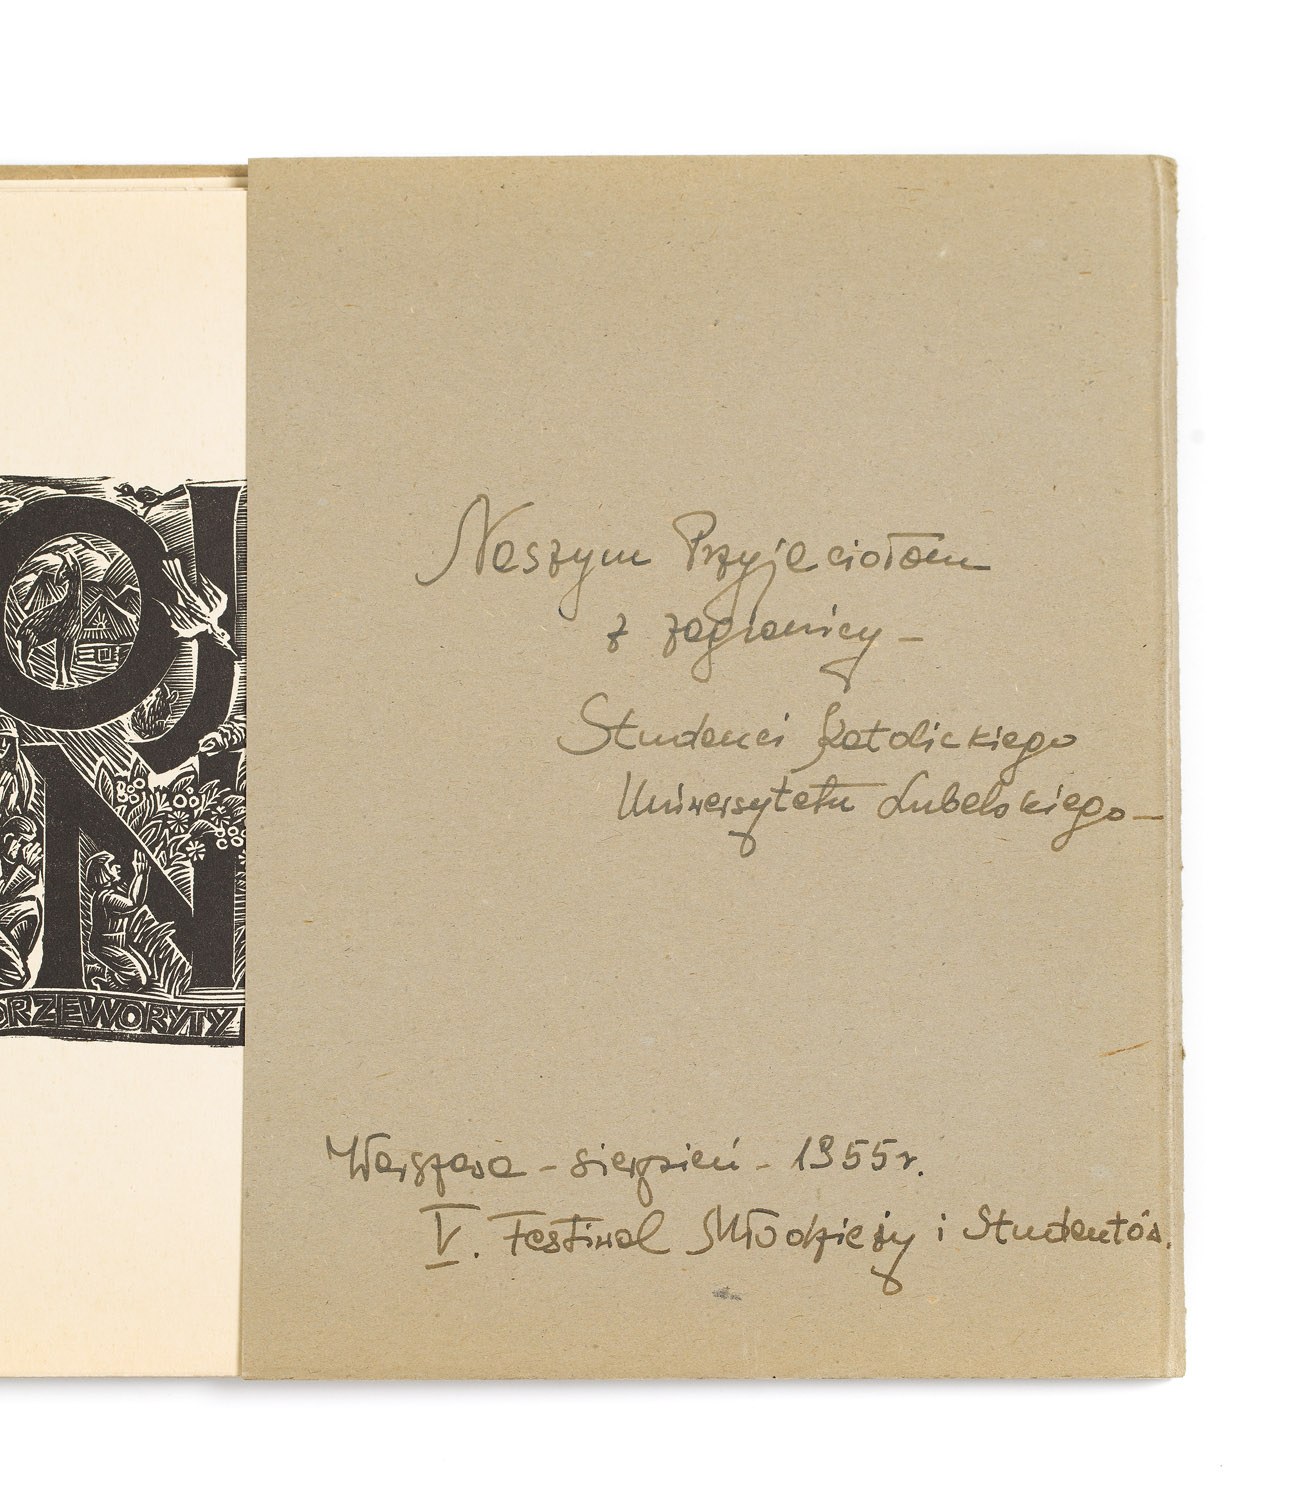 OJ
N
DRZEWORYTY
Naszym Przyjaciołom
z zagranicy –
Studenci Katolickiego
Uniwersytetu Lubelskiego –
Warszawa – sierpień – 1955 r.
V. Festiwal Młodzieży i Studentów.